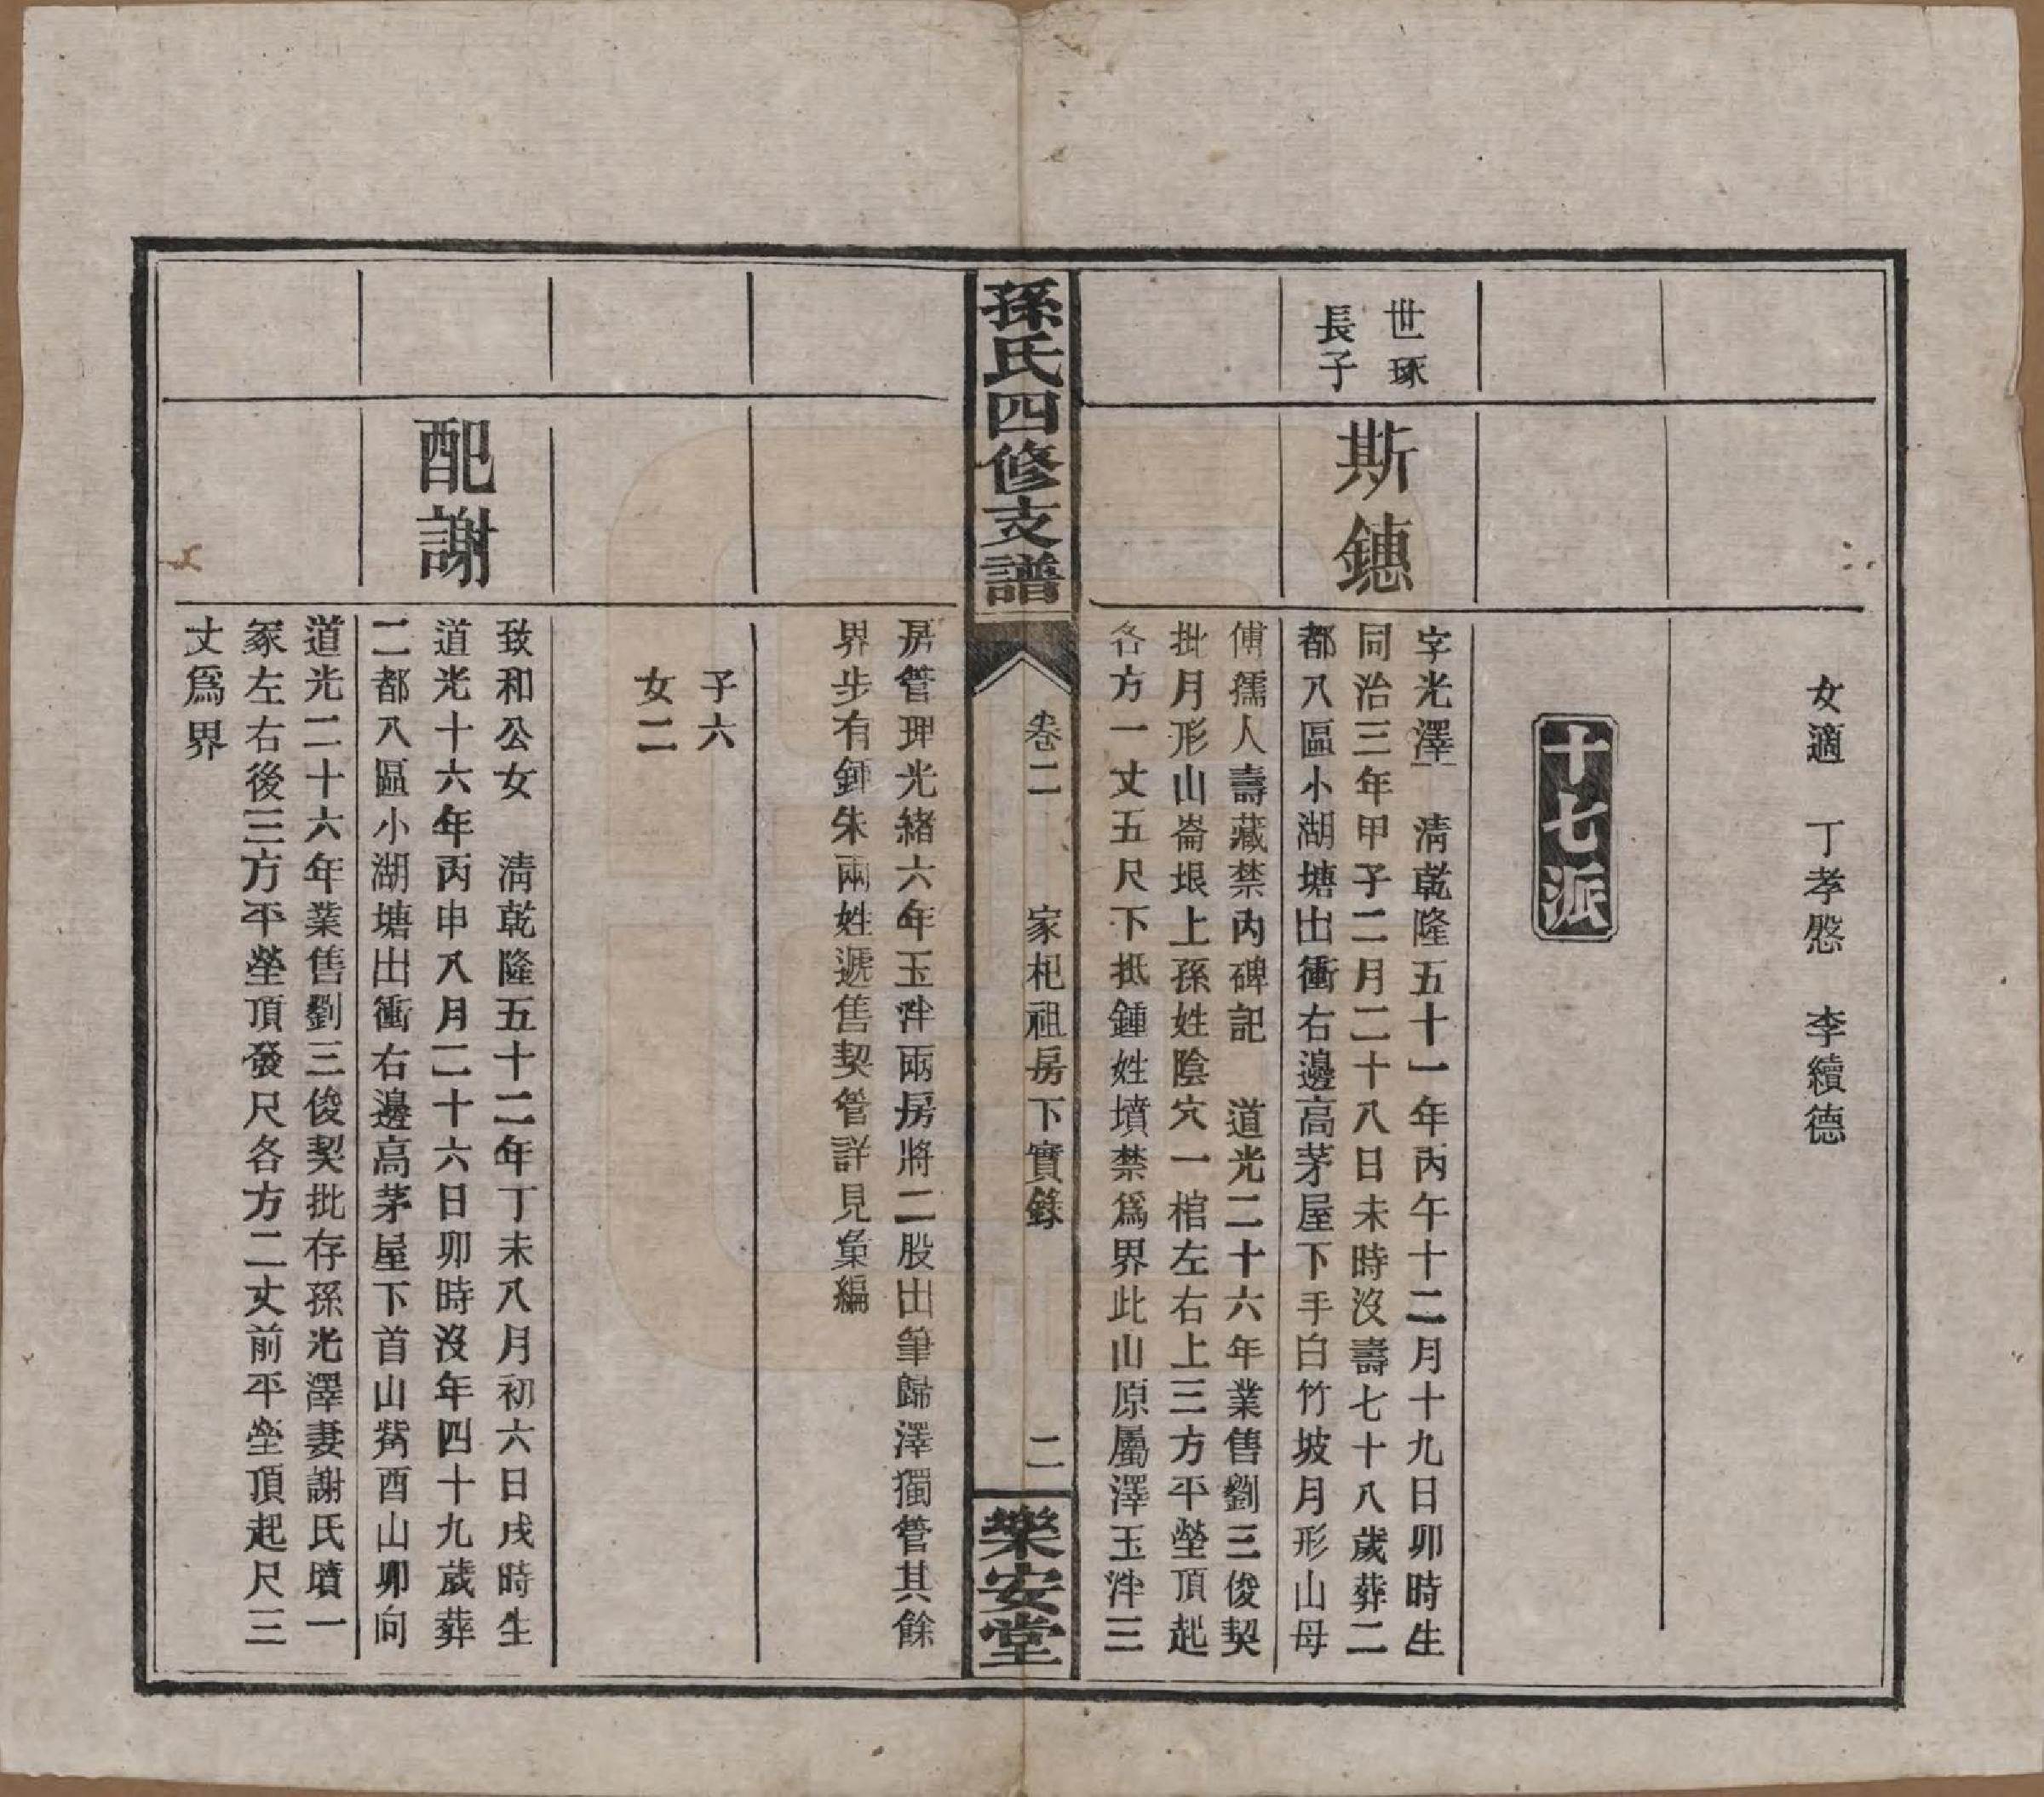 女適　丁孝慇　李續德
十七派
世琢
長子
斯鏸
字光澤　清乾隆五十一年丙午十二月十九日卯時生
同治三年甲子二月二十八日未時沒壽七十八歲葬二
都八區小湖塘出衝右邊高茅屋下手白竹坡月形山母
傅孺人壽藏禁內碑記　道光二十六年業售劉三俊契
批月形山崙垠上孫姓陰穴一棺左右上三方平塋頂起
各方一丈五尺下抵鍾姓墳禁爲界此山原屬澤玉泮三
孫氏四修支譜
卷二　家杞祖房下實錄　二
樂安堂
房管理光緒六年玉泮兩房將二股出筆歸澤獨管其餘
界步有鍾朱兩姓遞售契管詳見彙編
子六
女二
配謝
致和公女　清乾隆五十二年丁未八月初六日戌時生
道光十六年丙申八月二十六日卯時沒年四十九歲葬
二都八區小湖塘出衝右邊高茅屋下首山觜酉山卯向
道光二十六年業售劉三俊契批存孫光澤妻謝氏墳一
冢左右後三方平塋頂發尺各方二丈前平塋頂起尺三
丈爲界